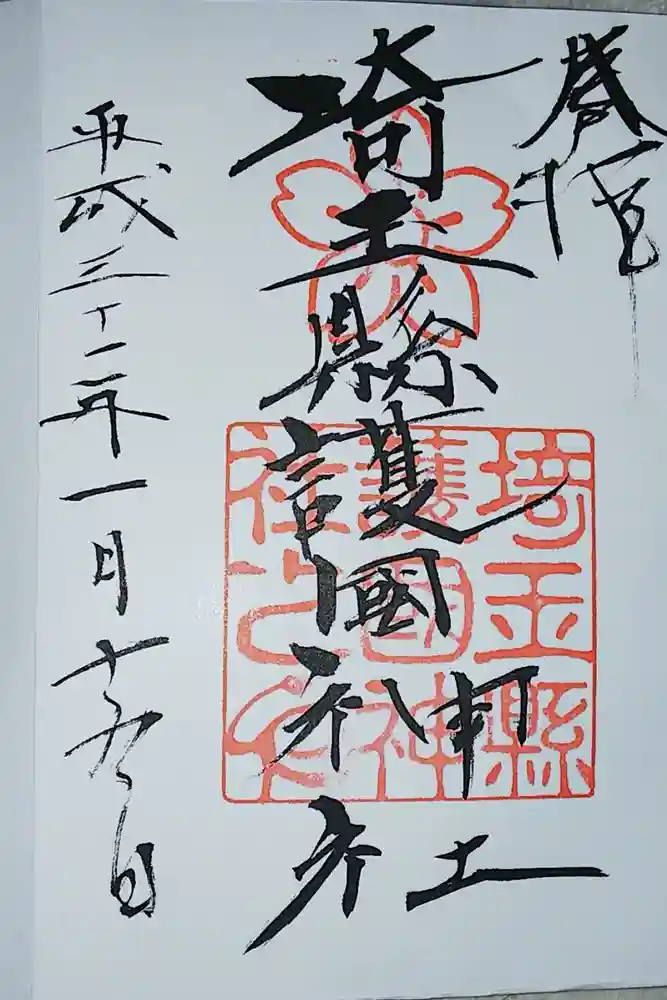 奉拝
埼玉縣護國神社
埼玉縣
護國神
社之印
平成三十一年一月十九日